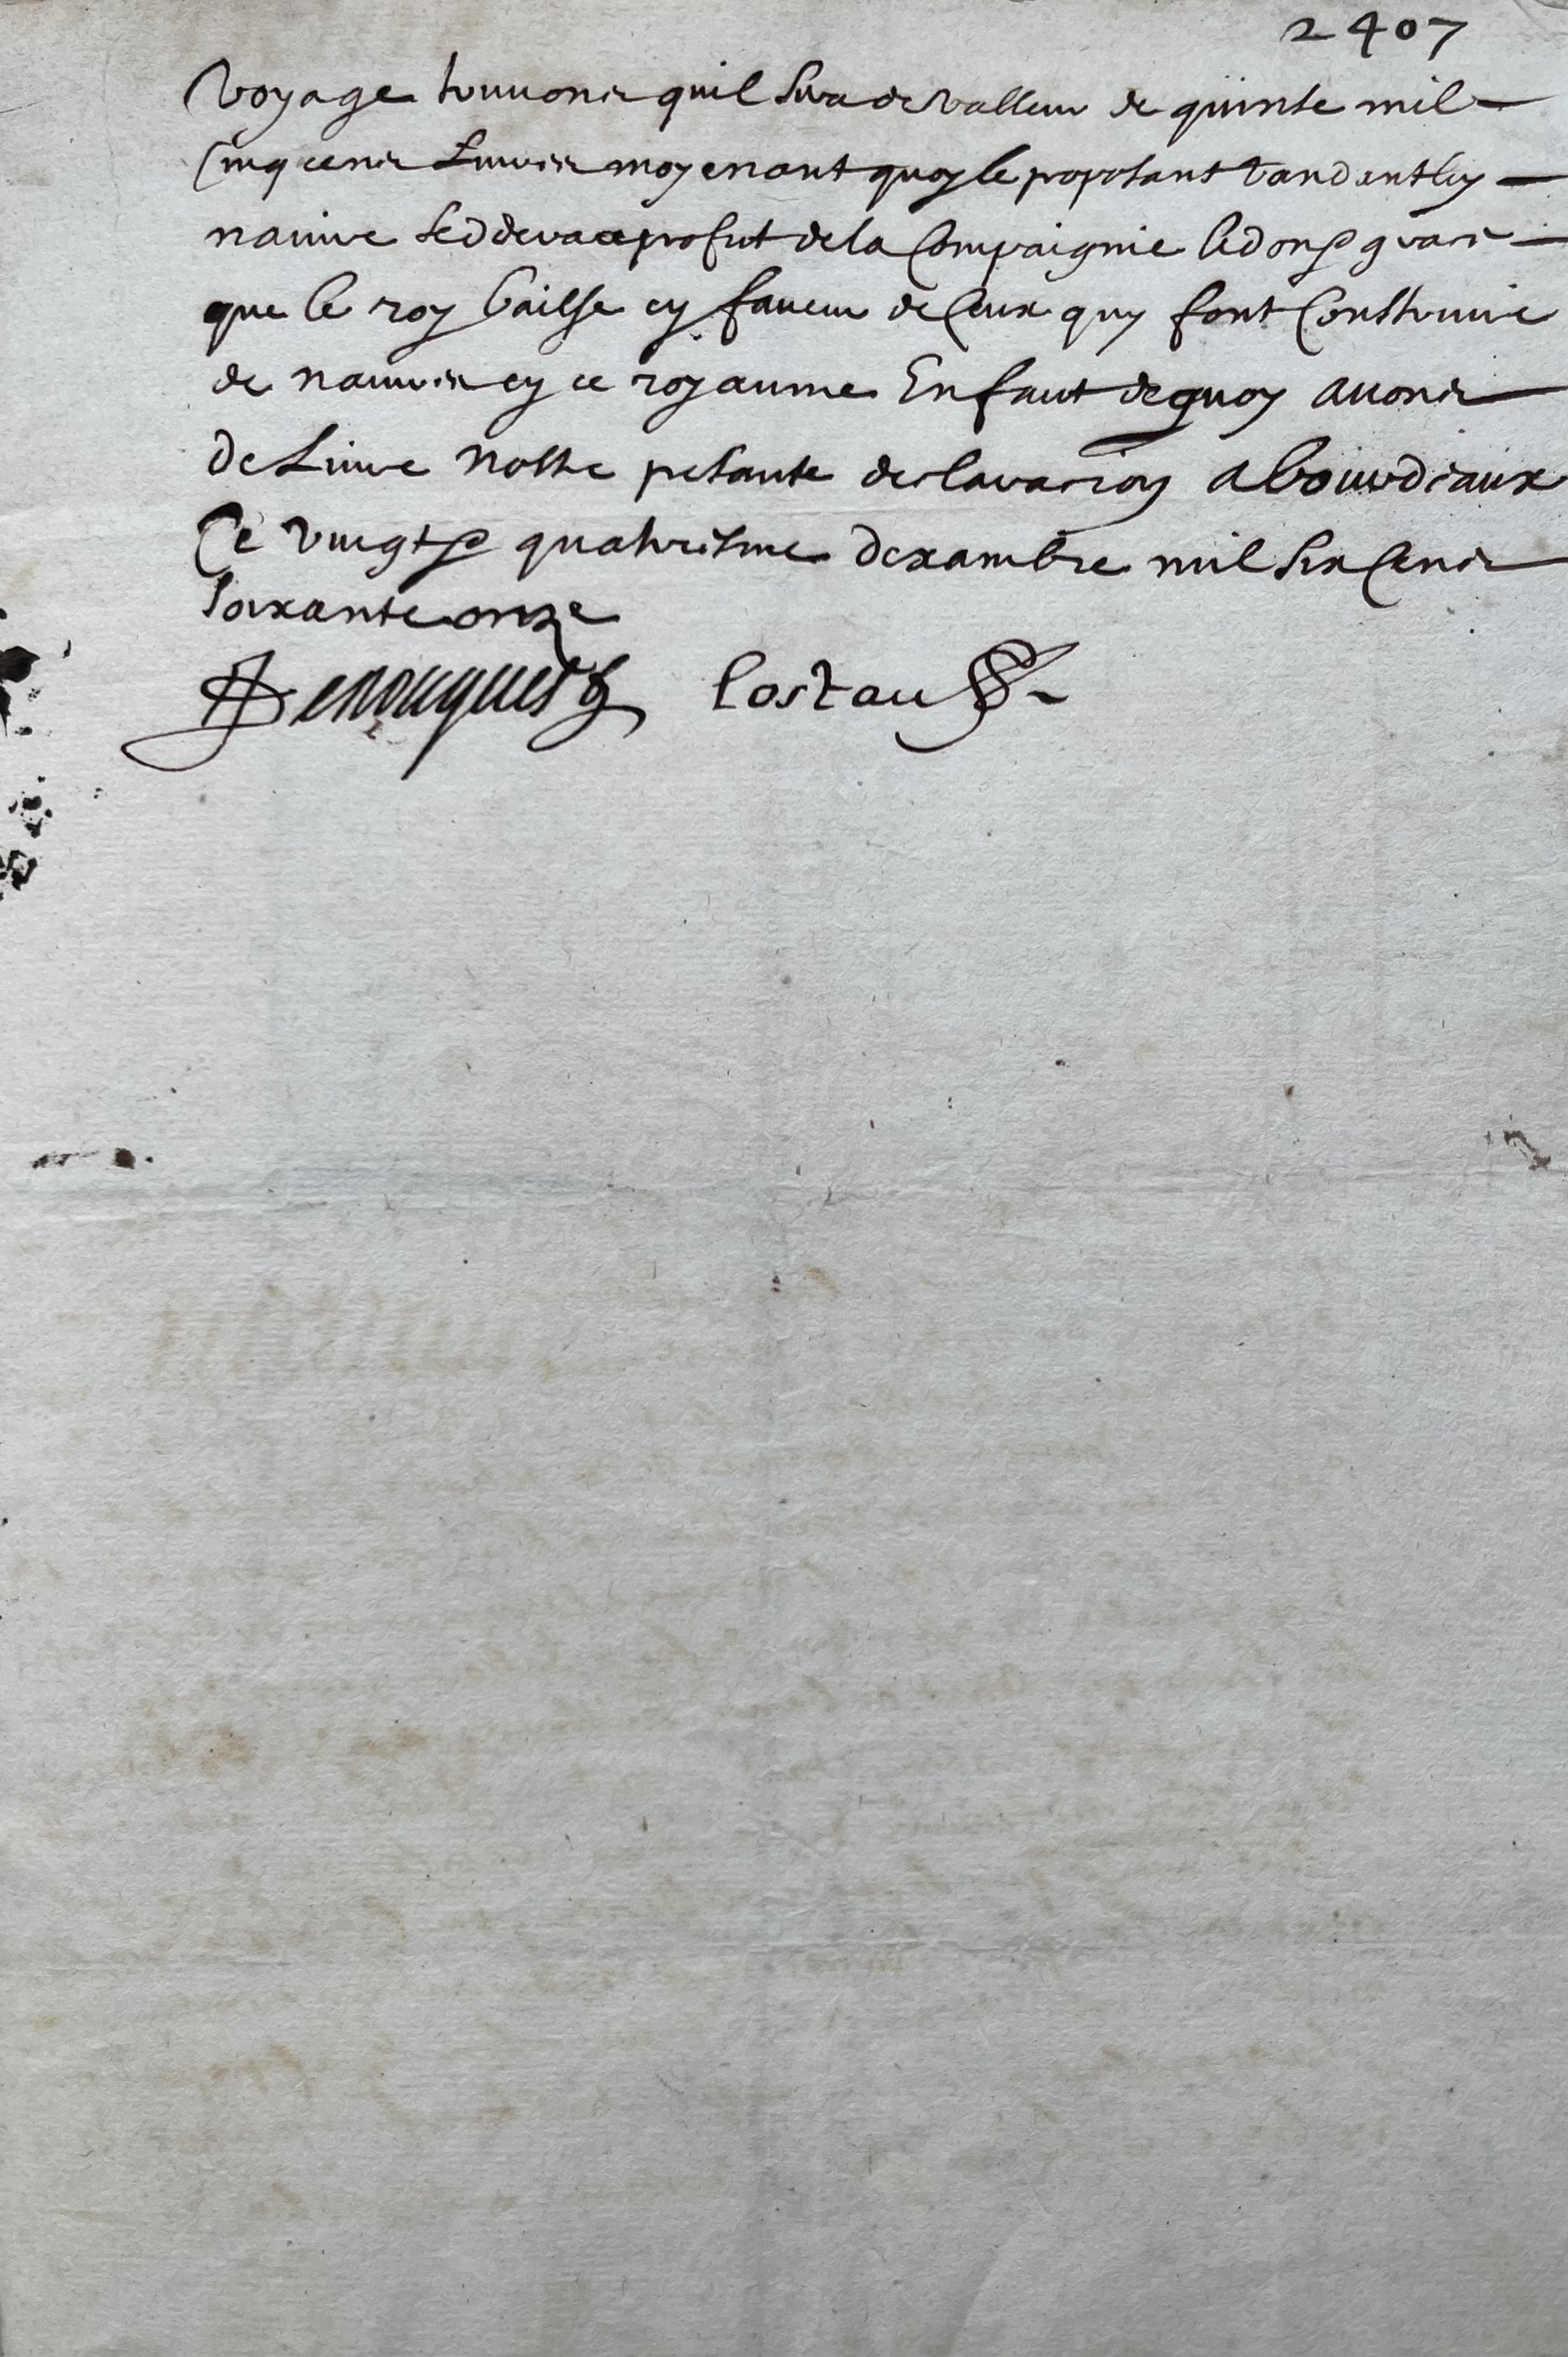 2407
Voyage trouvons quil sera de valleur de quinse mil
Cinq cens Livres moyenant quoy le proposant vandant led
navire seddera au profit de la Compaignie led don
que le roy baille en faveur de Ceux quy font Construire
de navires en ce royaume En faut de quoy avons
delivre nostre pesante declaration a bourdeaux
Ce vingt quatriesme dexambre mil six Cens
soixante onze
Lostau